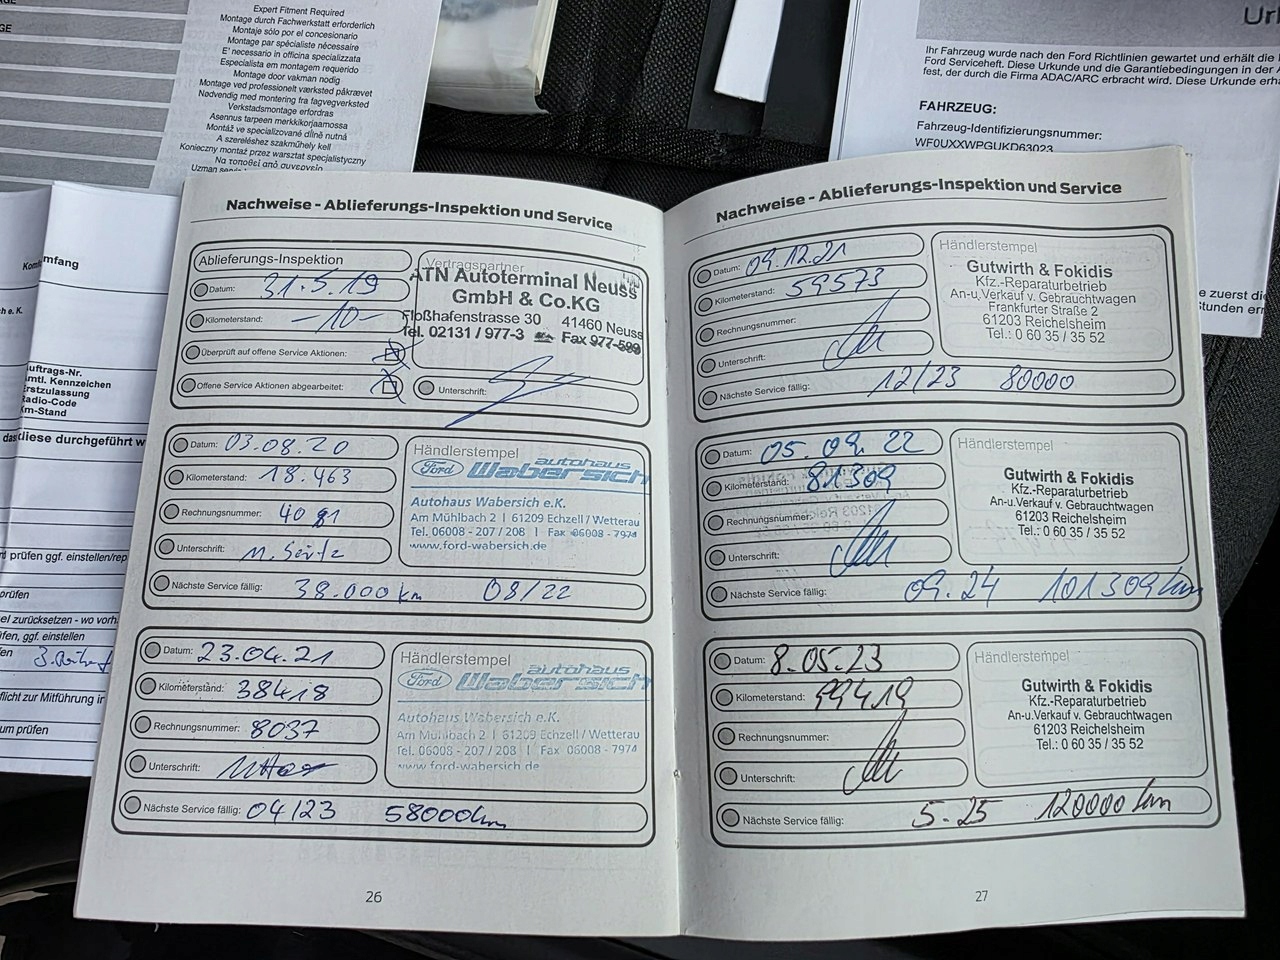 Expert Fitment Required
Montage durch Fachwerkstatt erforderlich
Montaje sólo por el concesionario
Montage par spécialiste nécessaire
E' necessario in officina specializzata
Especialista em montagem requerido
Montage door vakman nodig
Montage ved professionelt værksted påkrævet
Nødvendig med montering fra fagvegverksted
Verkstadsmontage erfordras
Asennus tarpeen merkkikorjaamossa
Montáž ve specializované dílně nutná
A szereléshez szakműhely kell
Konieczny montaż przez warsztat specjalistyczny
Να τοποθεί από συνεργείο
Ihr Fahrzeug wurde nach den Ford Richtlinien gewartet und erhält die
Ford Serviceheft. Diese Urkunde und die Garantiebedingungen in der
fest, der durch die Firma ADAC/ARC erbracht wird. Diese Urkunde
FAHRZEUG:
Fahrzeug-Identifizierungsnummer:
WF0UXXWPGUKD63023
Nachweise - Ablieferungs-Inspektion und Service
Ablieferungs-Inspektion
Datum: 31.5.19
Kilometerstand: -10-
Überprüft auf offene Service Aktionen:
Offene Service Aktionen abgearbeitet:
Vertragspartner
ATN Autoterminal Neuss
GmbH & Co.KG
Floßhafenstrasse 30 41460 Neuss
Tel. 02131 / 977-3 Fax 977-599
Unterschrift:
Datum: 03.08.20
Kilometerstand: 18.463
Rechnungsnummer: 4081
Unterschrift: M. Seitz
Nächste Service fällig: 38.000 km 08/22
Händlerstempel
Ford autohaus
Wabersich
Autohaus Wabersich e.K.
Am Mühlbach 2 | 61209 Echzell / Wetterau
Tel. 06008 - 207 / 208 | Fax 06008 - 7974
www.ford-wabersich.de
Datum: 23.04.21
Kilometerstand: 38418
Rechnungsnummer: 8037
Unterschrift:
Nächste Service fällig: 04/23 58000km
Händlerstempel
Ford autohaus
Wabersich
Autohaus Wabersich e.K.
Am Mühlbach 2 | 61209 Echzell / Wetterau
Tel. 06008 - 207 / 208 | Fax 06008 - 7974
www.ford-wabersich.de
26
Nachweise - Ablieferungs-Inspektion und Service
Datum: 09.12.21
Kilometerstand: 59573
Rechnungsnummer:
Unterschrift:
Nächste Service fällig: 12/23 80000
Händlerstempel
Gutwirth & Fokidis
Kfz.-Reparaturbetrieb
An-u.Verkauf v. Gebrauchtwagen
Frankfurter Straße 2
61203 Reichelsheim
Tel.: 0 60 35 / 35 52
Datum: 05.09.22
Kilometerstand: 81309
Rechnungsnummer:
Unterschrift:
Nächste Service fällig: 09.24 101309 km
Händlerstempel
Gutwirth & Fokidis
Kfz.-Reparaturbetrieb
An-u.Verkauf v. Gebrauchtwagen
61203 Reichelsheim
Tel.: 0 60 35 / 35 52
Datum: 8.05.23
Kilometerstand: 99419
Rechnungsnummer:
Unterschrift:
Nächste Service fällig: 5.25 120000 km
Händlerstempel
Gutwirth & Fokidis
Kfz.-Reparaturbetrieb
An-u.Verkauf v. Gebrauchtwagen
61203 Reichelsheim
Tel.: 0 60 35 / 35 52
27
mfang
uftrags-Nr.
mtl. Kennzeichen
rstzulassung
adio-Code
m-Stand
diese durchgeführt w
prüfen ggf. einstellen/rep
prüfen
el zurücksetzen - wo vorh
fen, ggf. einstellen
flicht zur Mitführung in
um prüfen
e zuerst die